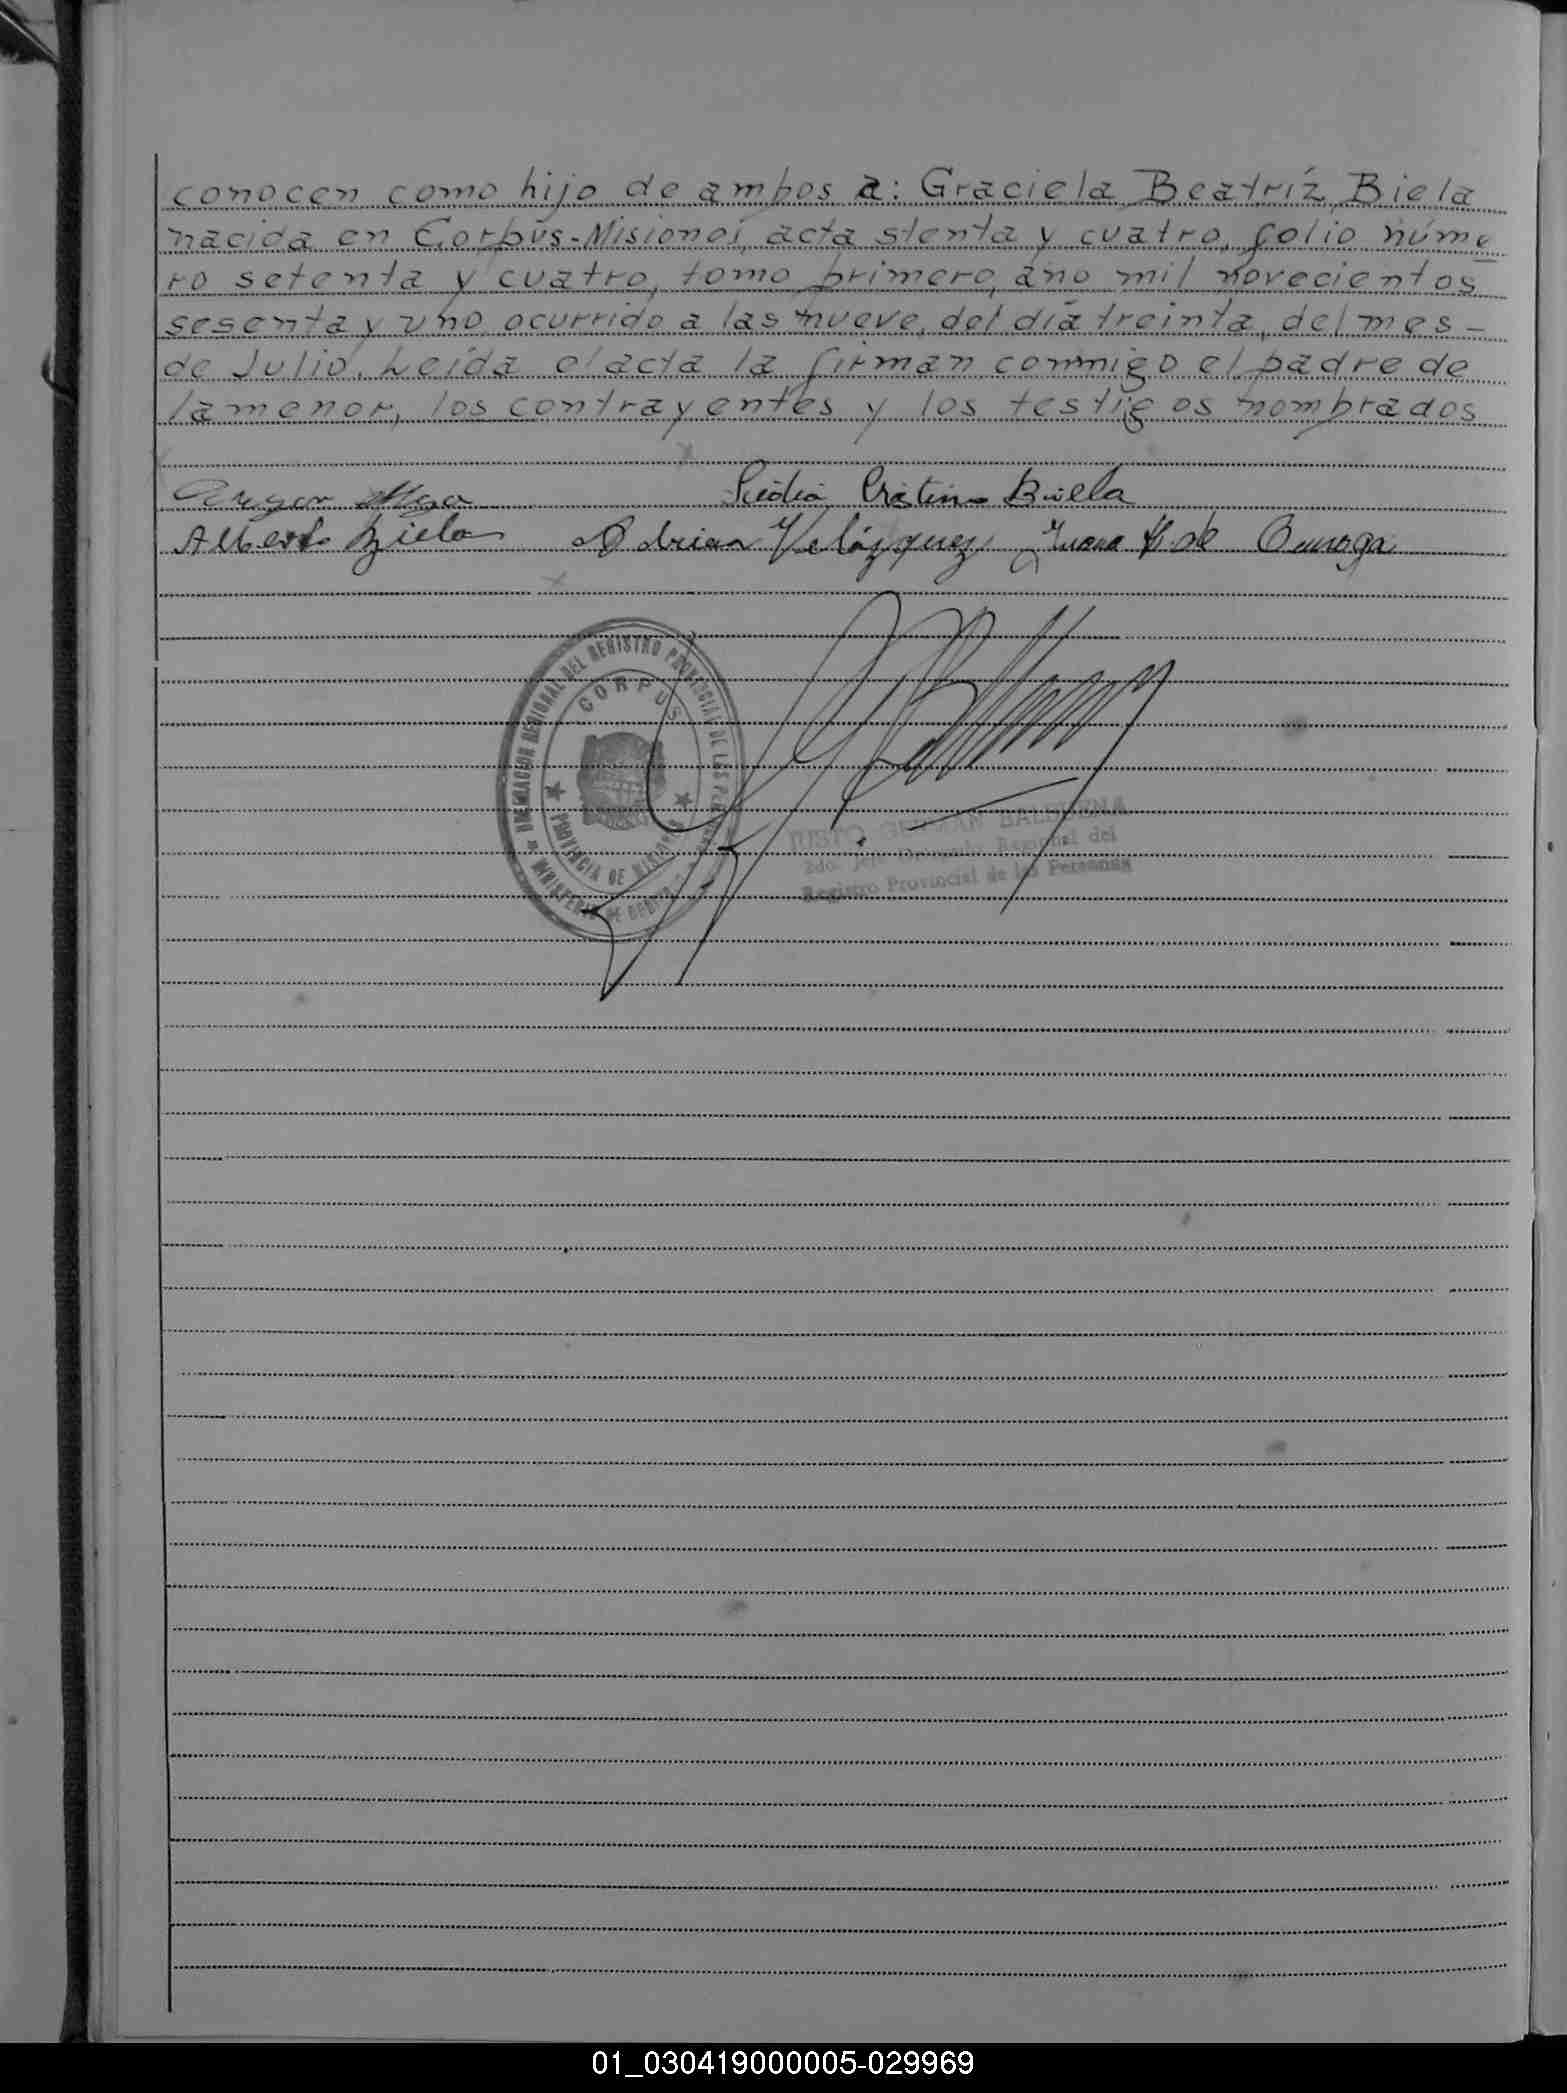 conocen como hijo de ambos a: Graciela Beatríz Biela
nacida en Corpus-Misiones, acta stenta y cuatro, folio núme
ro setenta y cuatro, tomo primero, año mil novecientos
sesenta y uno ocurrido a las nueve, del día treinta, del mes-
de Julio. Leída el acta la firman conmigo el padre de
la menor, los contrayentes y los testigos nombrados
Cristina Biela
Alberto Biela Adrian Velázquez Juana de
DELEGACION REGIONAL DEL REGISTRO PROVINCIAL DE LAS PERSONAS
CORPUS
PROVINCIA DE MISIONES
MINISTERIO DE GOBIERNO
JUSTO GERMAN BALBUENA
2do. Jefe Delegado Regional del
Registro Provincial de las Personas
01_030419000005-029969